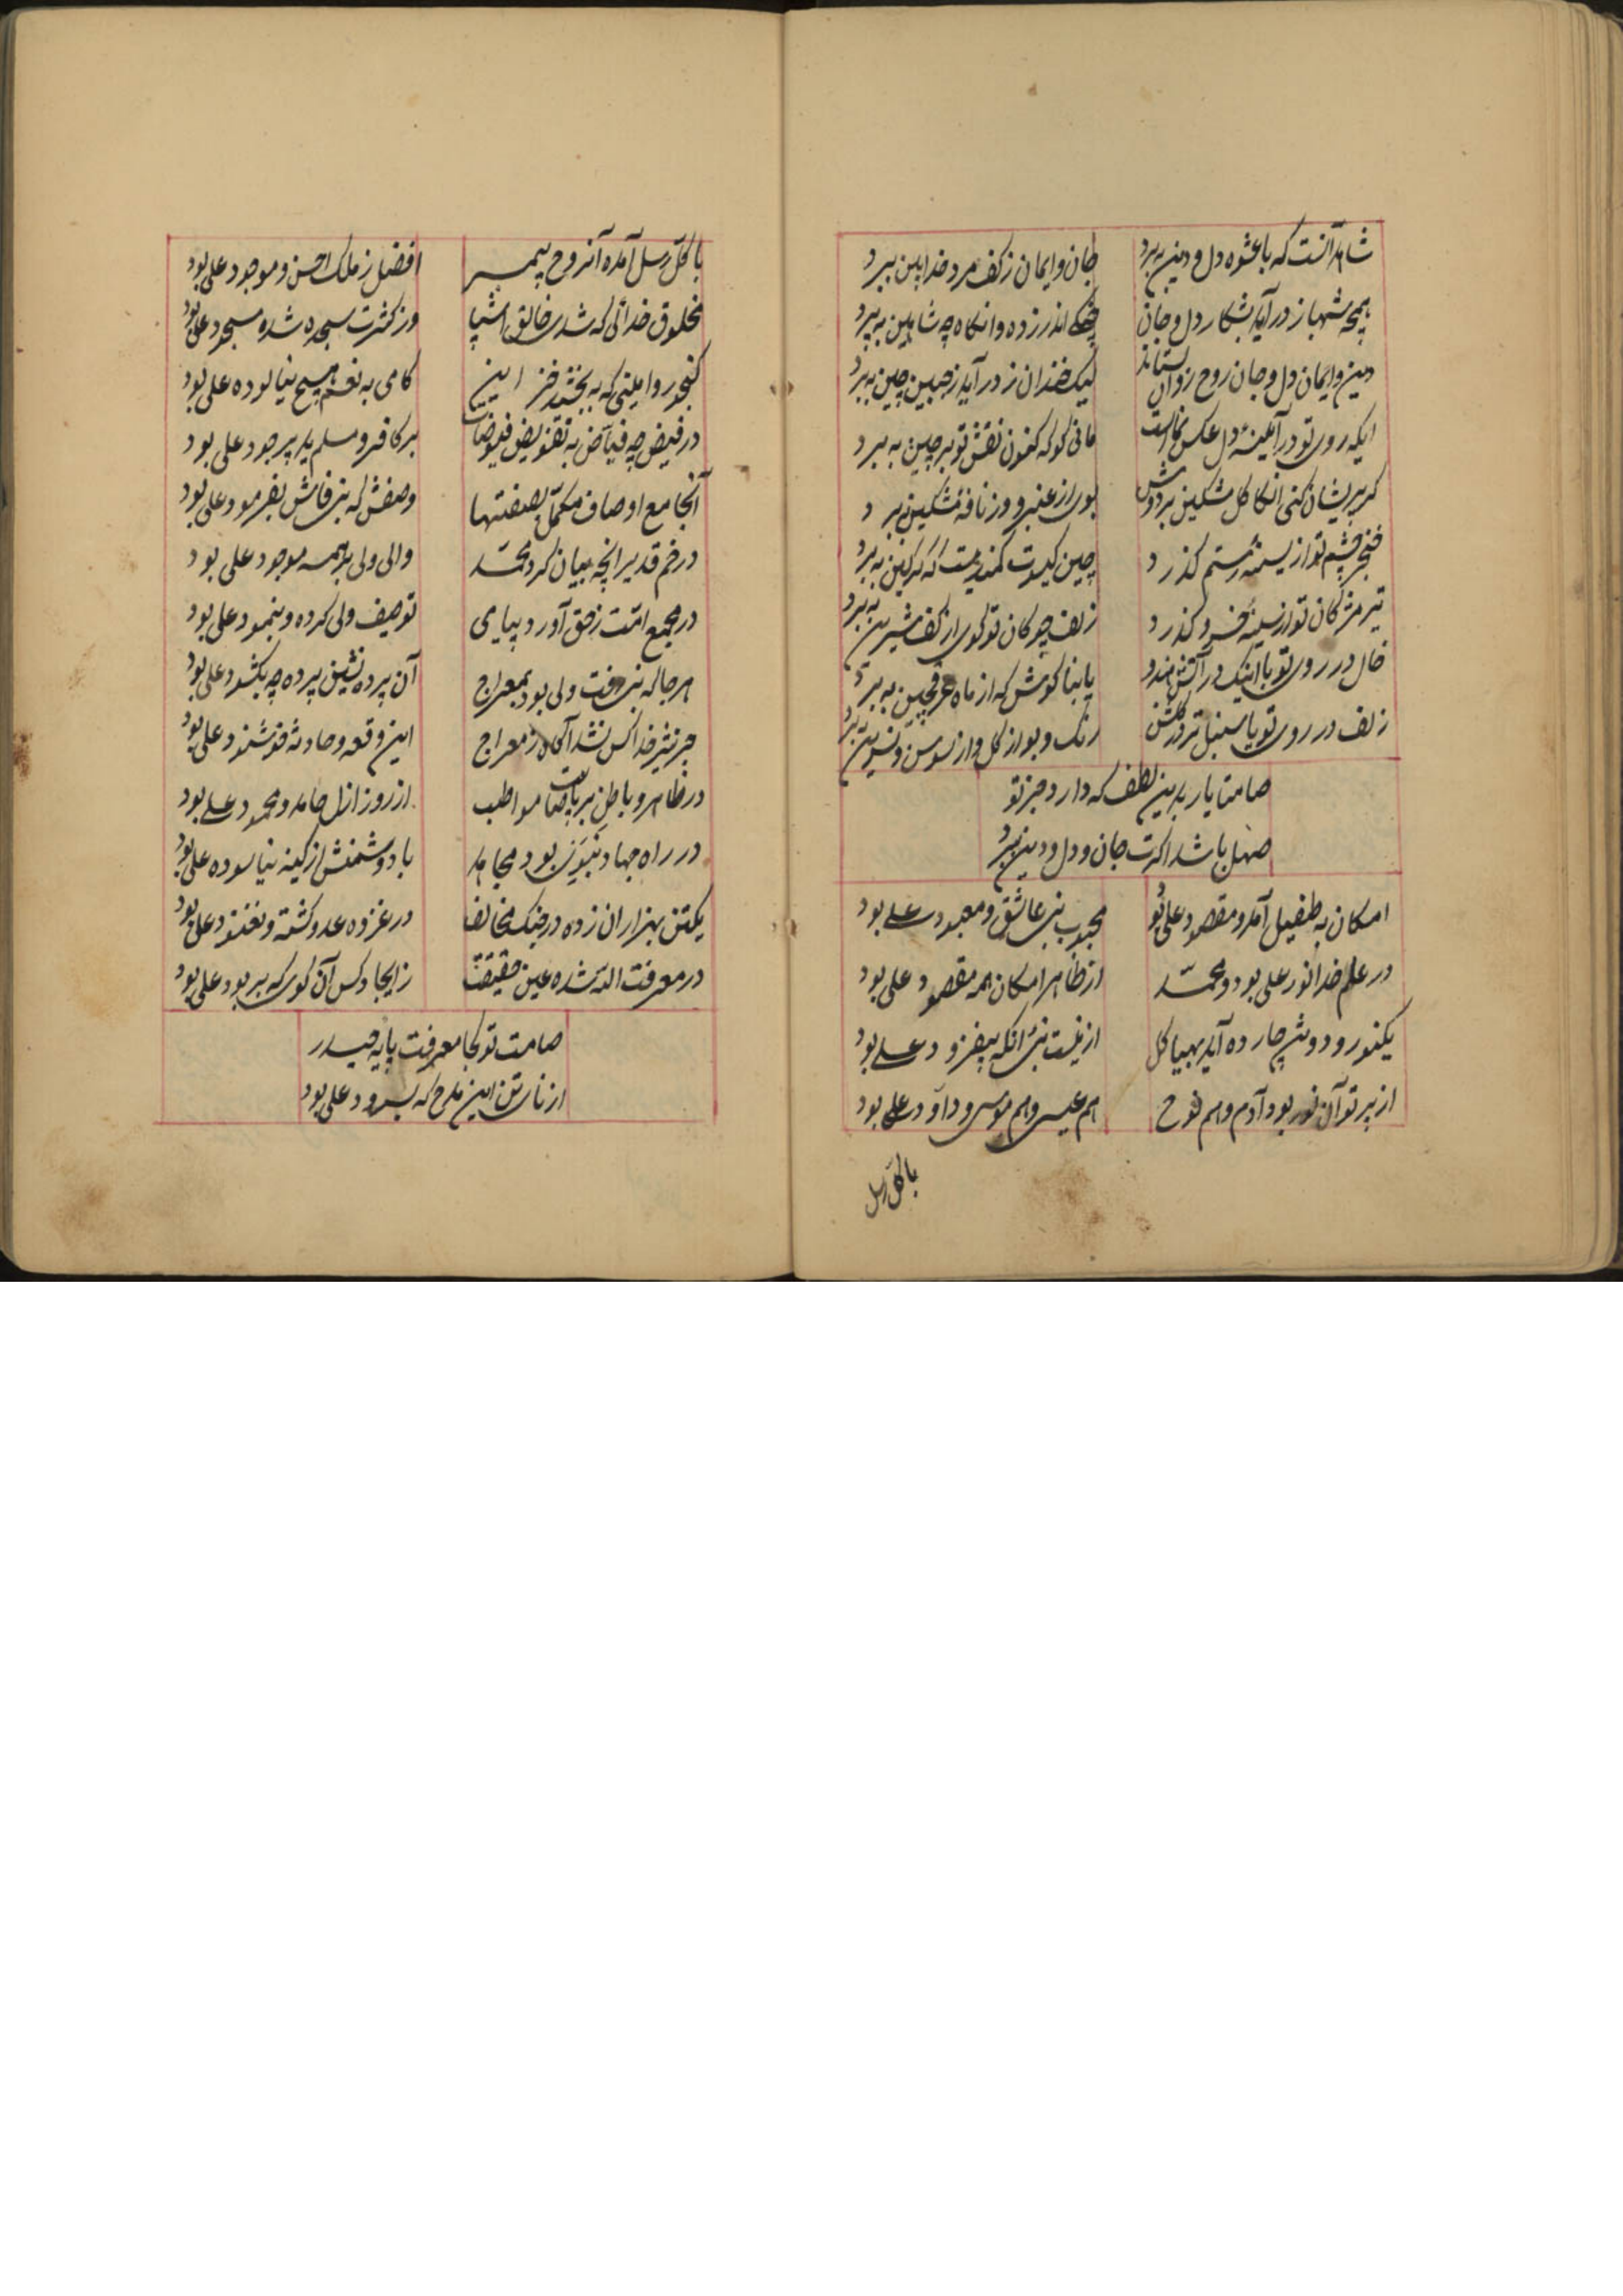 شاهد آنست که با عشوه دل و دین ببرد
جان و ایمان ز کف مرد خدا بین ببرد
همچه شهباز در آید بشکار دل و جان
اندر زده وانکاه چه شاهین به پرد
دین و ایمان دل و جان روح روان بستاند
لیک خندان ز در آید ز جبین چین به برد
ایکه روی تو در آیینهٔ دل عکس نماست
مانی کو که کنون نقش تو بر چین به برد
کر پریشان کنی انکاکل مشکین بر دوش
بوی از عنبر و وز نافهٔ مشکین ببرد
خنجر چشم تو از سینهٔ رستم گذرد
چین کیسوت کمندیست که کرکین به برد
تیر مژکان تو از سینهٔ خسرو گذرد
زلف چوکان تو کوی از کف شیرین به برد
خال در روی تو یا اینک در آتش هندو
یا بنا کوش که از ماه به برد
زلف در روی تو یا سنبل تر در گلشن
رنک و بو از کل و از سوسن و نسرین ببرد
صامتا یار بدین لطف که دارد جز تو
سهل باشد اکرت جان و دل و دین ببرد
امکان به طفیل آمد و مقصود علی بود
محبوب نبی عاشق و معبود علی بود
در علم خدا نور علی بود و محمد
از ظاهر امکان همه مقصود علی بود
یکنور و دو تن چارده آید بهیاکل
از نیست نبی انکه بیفزود علی بود
از پرتو آن نور بود آدم و هم نوح
هم عیسی و هم موسی و داود علی بود
با کل رسل
با کل رسل آمده آنروح پیمبر
افضل ز ملک احسن و موجود علی بود
مخلوق خدائی که شدی خالق اشیا
وز کثرت سجده شده مسجود علی بود
کنجور و امینی که به بخشد خزاین
کامی به نعم هیچ نیالوده علی بود
در فیض چه فیاض به تفویض فیوضات
بر کافر و مسلم ید پر جود علی بود
آنجامع اوصاف مکمل بصفتها
وصفش که نبی فاش بفرمود علی بود
در خم قدیر انچه بیان کرد محمد
والی ولی بر همه موجود علی بود
در مجمع امت ز حق آورد پیامی
توصیف ولی کرده و بنمود علی بود
هر جا که نبی رفت ولی بود بمعراج
آن پرده نشین پرده چه بکشود علی بود
جز شیر خدا کس نشد آگاه ز معراج
این وقعه و حادثه خوشنود علی بود
در ظاهر و باطن بریاضات مواظب
از روز ازل حامد و محمود علی بود
در راه جهاد نبوی بود مجاهد
با دشمنش از کینه نیاسوده علی بود
یکتن بهزاران زده در جنک مخالف
در غزوه عدو کشته و نغنود علی بود
در معرفت الله شده عین حقیقت
ز ایجاد کس آن کوی که بربود علی بود
صامت تو کجا معرفت پایه حیدر
از نای تو این مدح که بسرود علی بود